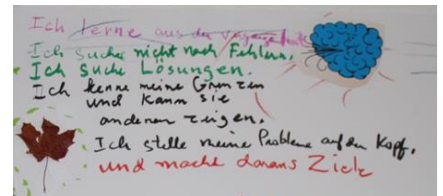 Ich lerne aus der Vergangenheit
Ich suche nicht nach Fehlern,
Ich suche Lösungen.
Ich kenne meine Grenzen
und kann sie
anderen zeigen.
Ich stelle meine Probleme auf den Kopf,
und mache daraus Ziele